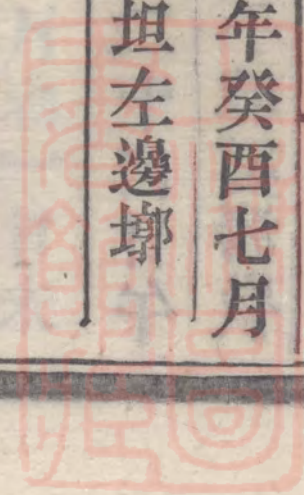 年癸酉七月
坦左邊墎